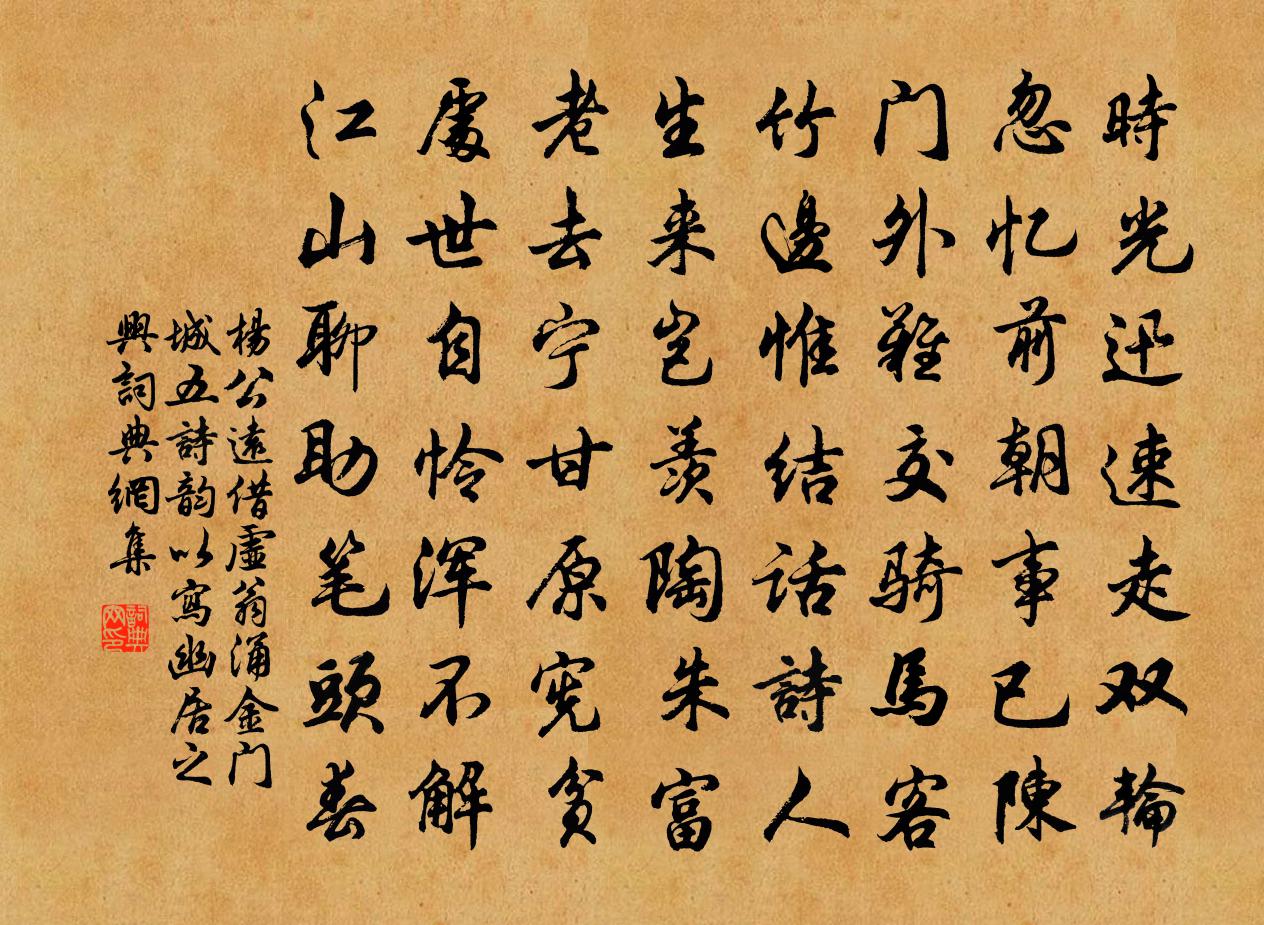 時光迅速走双輪
忽忆前朝事已陳
门外難交騎馬客
竹邊惟結話詩人
生来岂羨陶朱富
老去宁甘原宪貧
處世自怜浑不解
江山聊助笔頭春
楊公遠借虛翁涌金门
城五詩韵以寫幽居之
興詞典網集
詞典网印